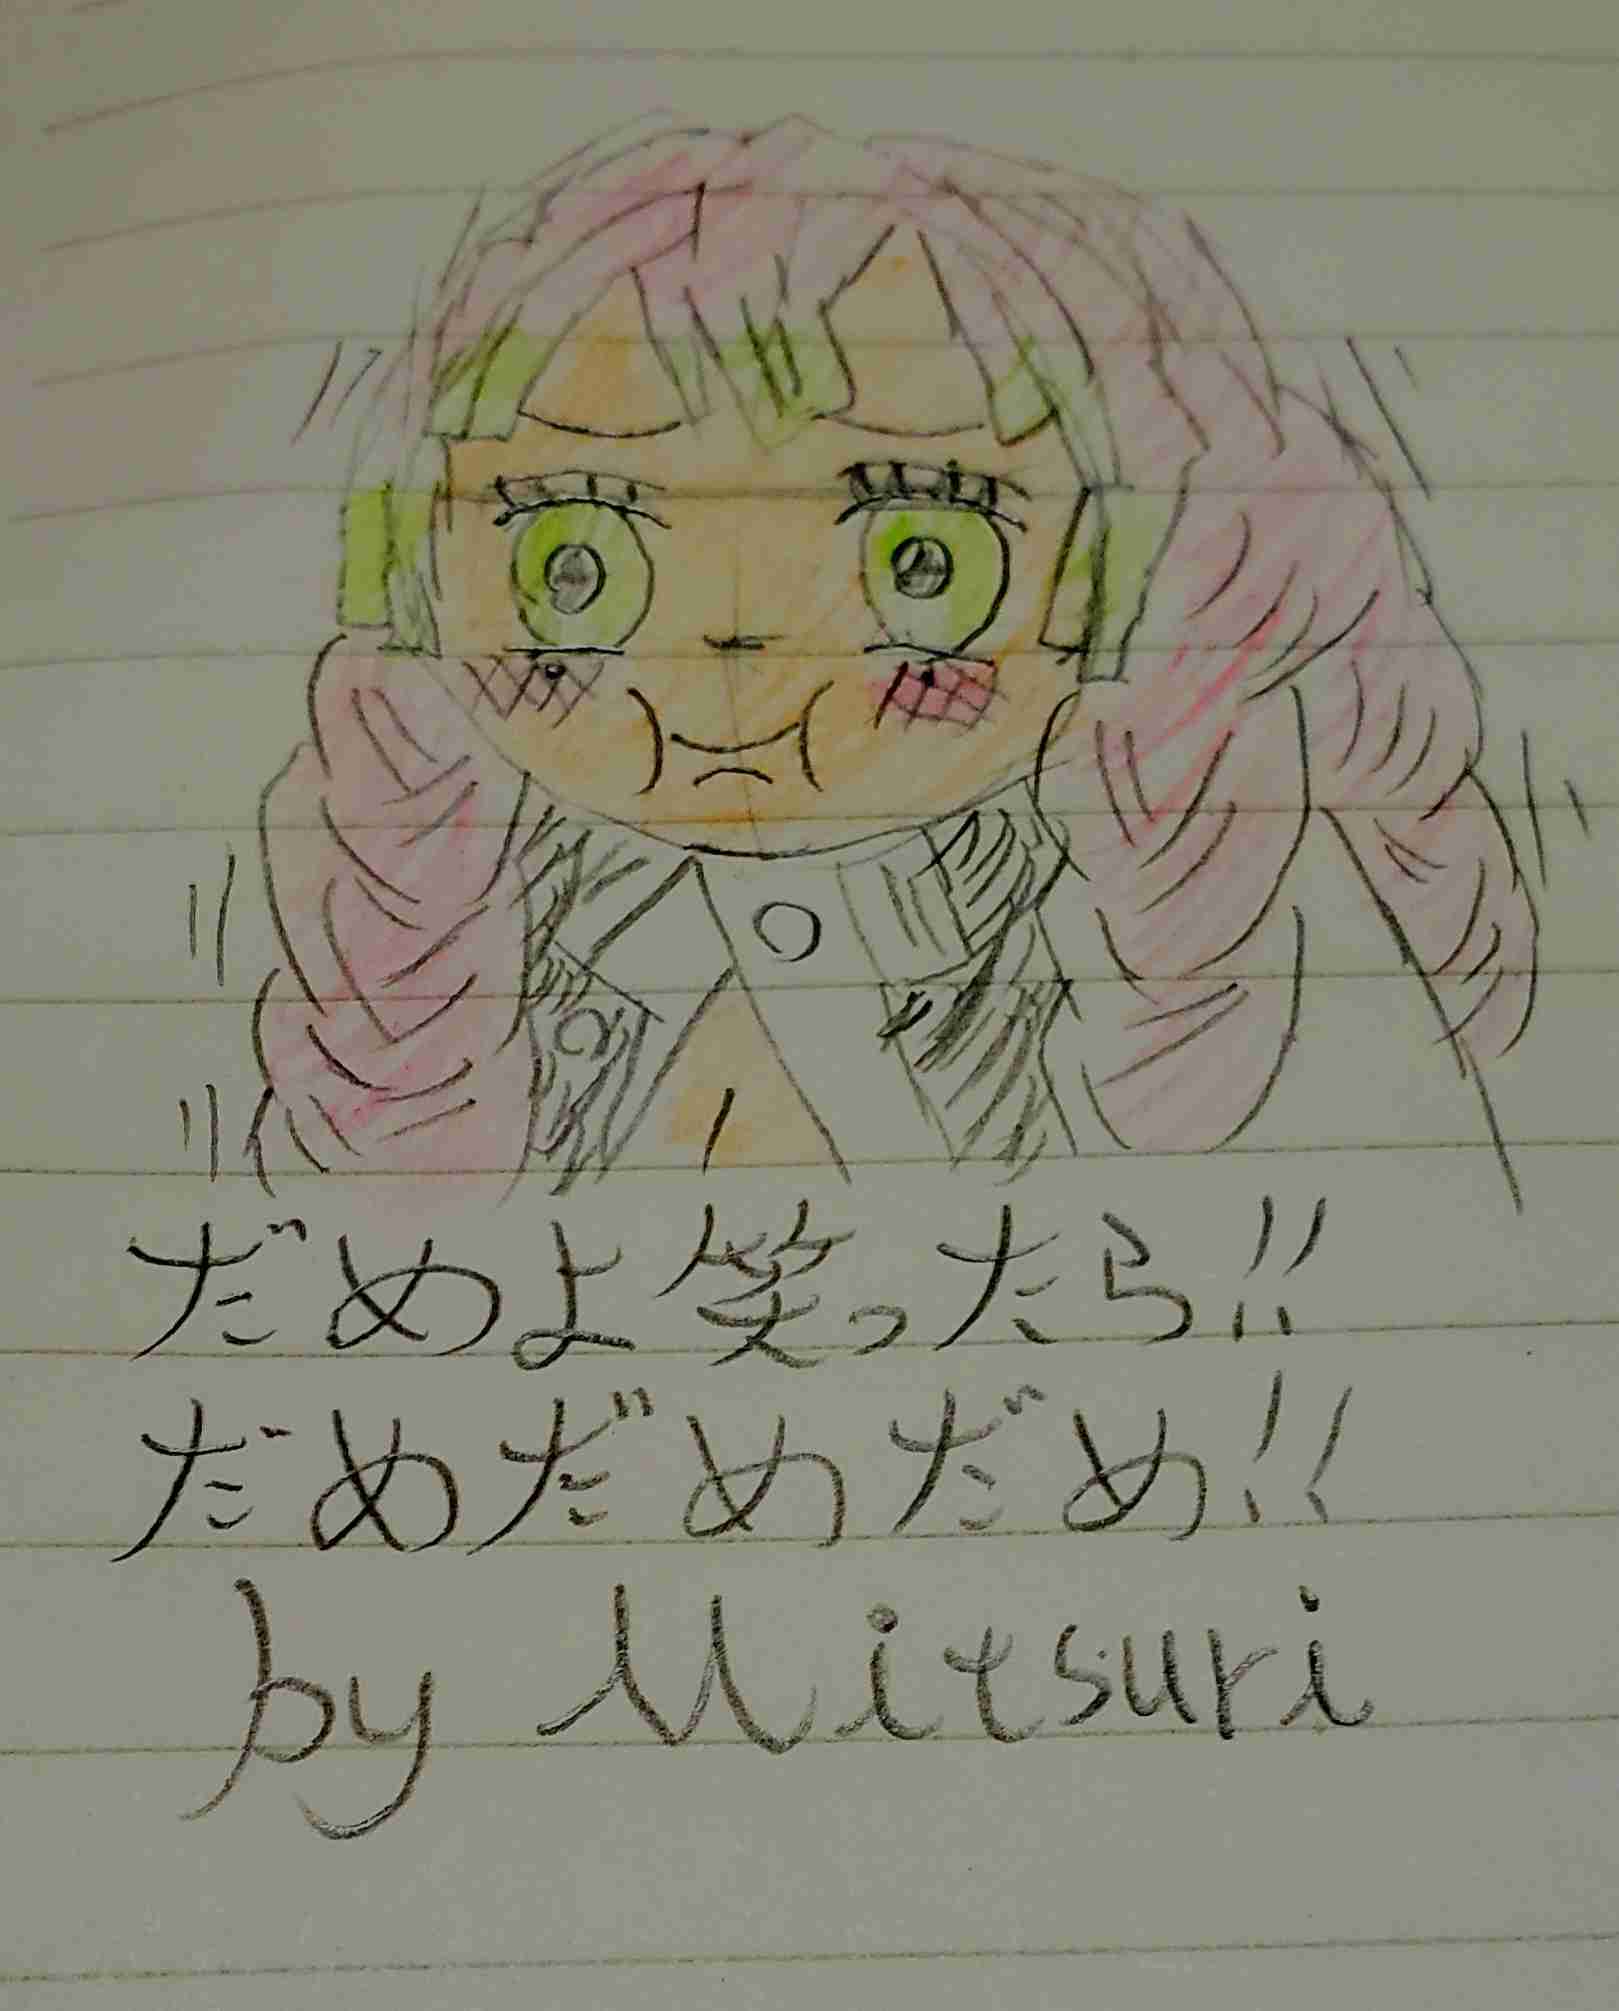 だめよ笑ったら!!
だめだめだめ!!
by Mitsuri